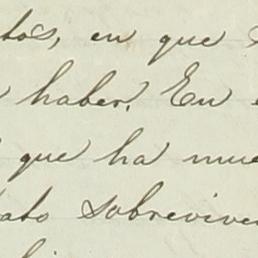 tos, en que
haber. En
que ha mue
ato sobrevive